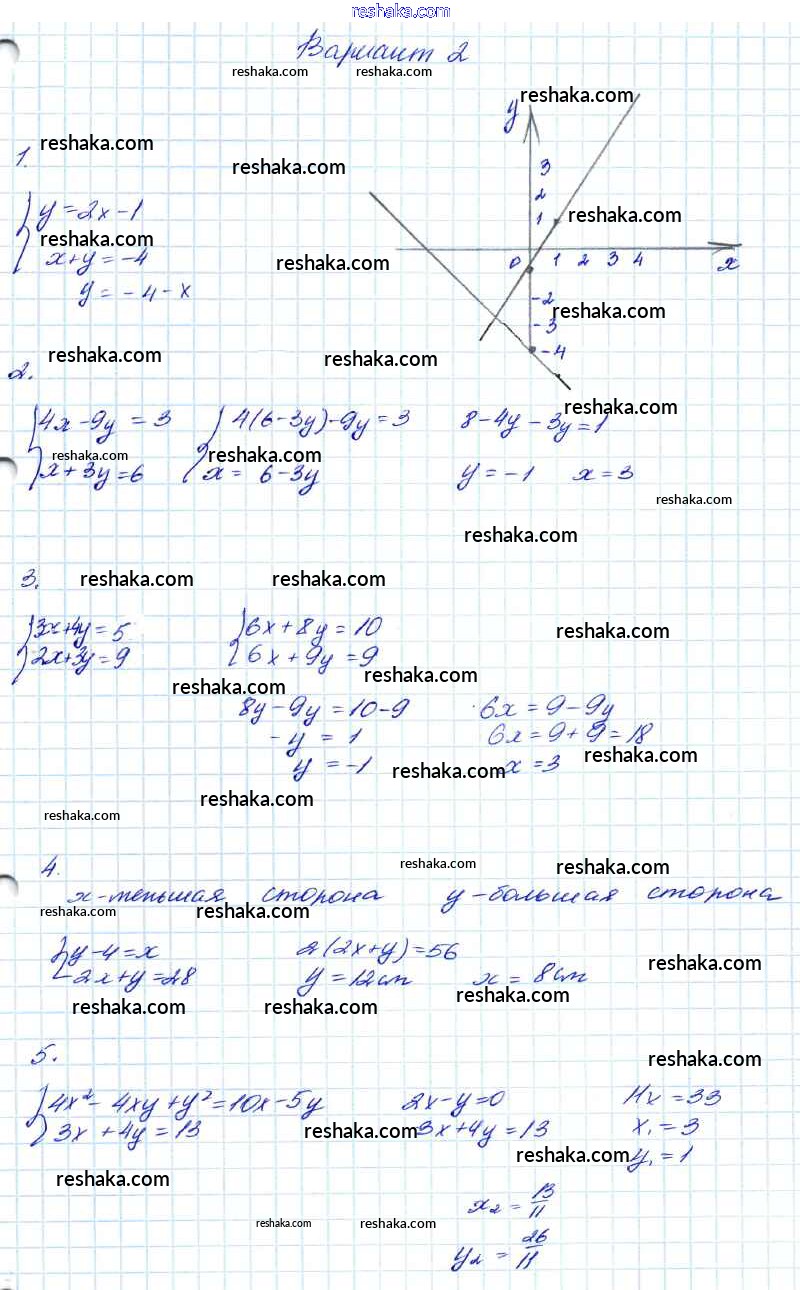 www.reshaka.com
Вариант 2
reshaka.com reshaka.com
reshaka.com
reshaka.com
reshaka.com
y
1.
3
2
{ y = 2x - 1
1
reshaka.com
reshaka.com
x + y = -4
reshaka.com
0 1 2 3 4 x
y = -4 - x
-2
reshaka.com
-3
reshaka.com
reshaka.com
-4
2.
reshaka.com
{ 4x - 9y = 3 { 4(6-3y) - 9y = 3 8 - 4y - 3y = 1
reshaka.com reshaka.com
x + 3y = 6 x = 6 - 3y y = -1 x = 3
reshaka.com
reshaka.com
3.
reshaka.com reshaka.com
{ 3x+4y = 5 { 6x + 8y = 10
reshaka.com
2x+3y = 9 6x + 9y = 9
reshaka.com
reshaka.com
8y - 9y = 10 - 9 6x = 9 - 9y
-y = 1 6x = 9 + 9 = 18
reshaka.com
y = -1 x = 3
reshaka.com
reshaka.com
reshaka.com
4.
reshaka.com reshaka.com
x - меньшая сторона y - большая сторона
reshaka.com reshaka.com
{ y - 4 = x 2(2x+y) = 56
reshaka.com
2x + y = 28 y = 12 см x = 8 см
reshaka.com
reshaka.com reshaka.com
5.
reshaka.com
{ 4x² - 4xy + y² = 10x - 5y 2x - y = 0 11x = 33
3x + 4y = 13 3x + 4y = 13 x₁ = 3
reshaka.com
reshaka.com
y₁ = 1
reshaka.com
x₂ = 13/11
reshaka.com reshaka.com
y₂ = 26/11